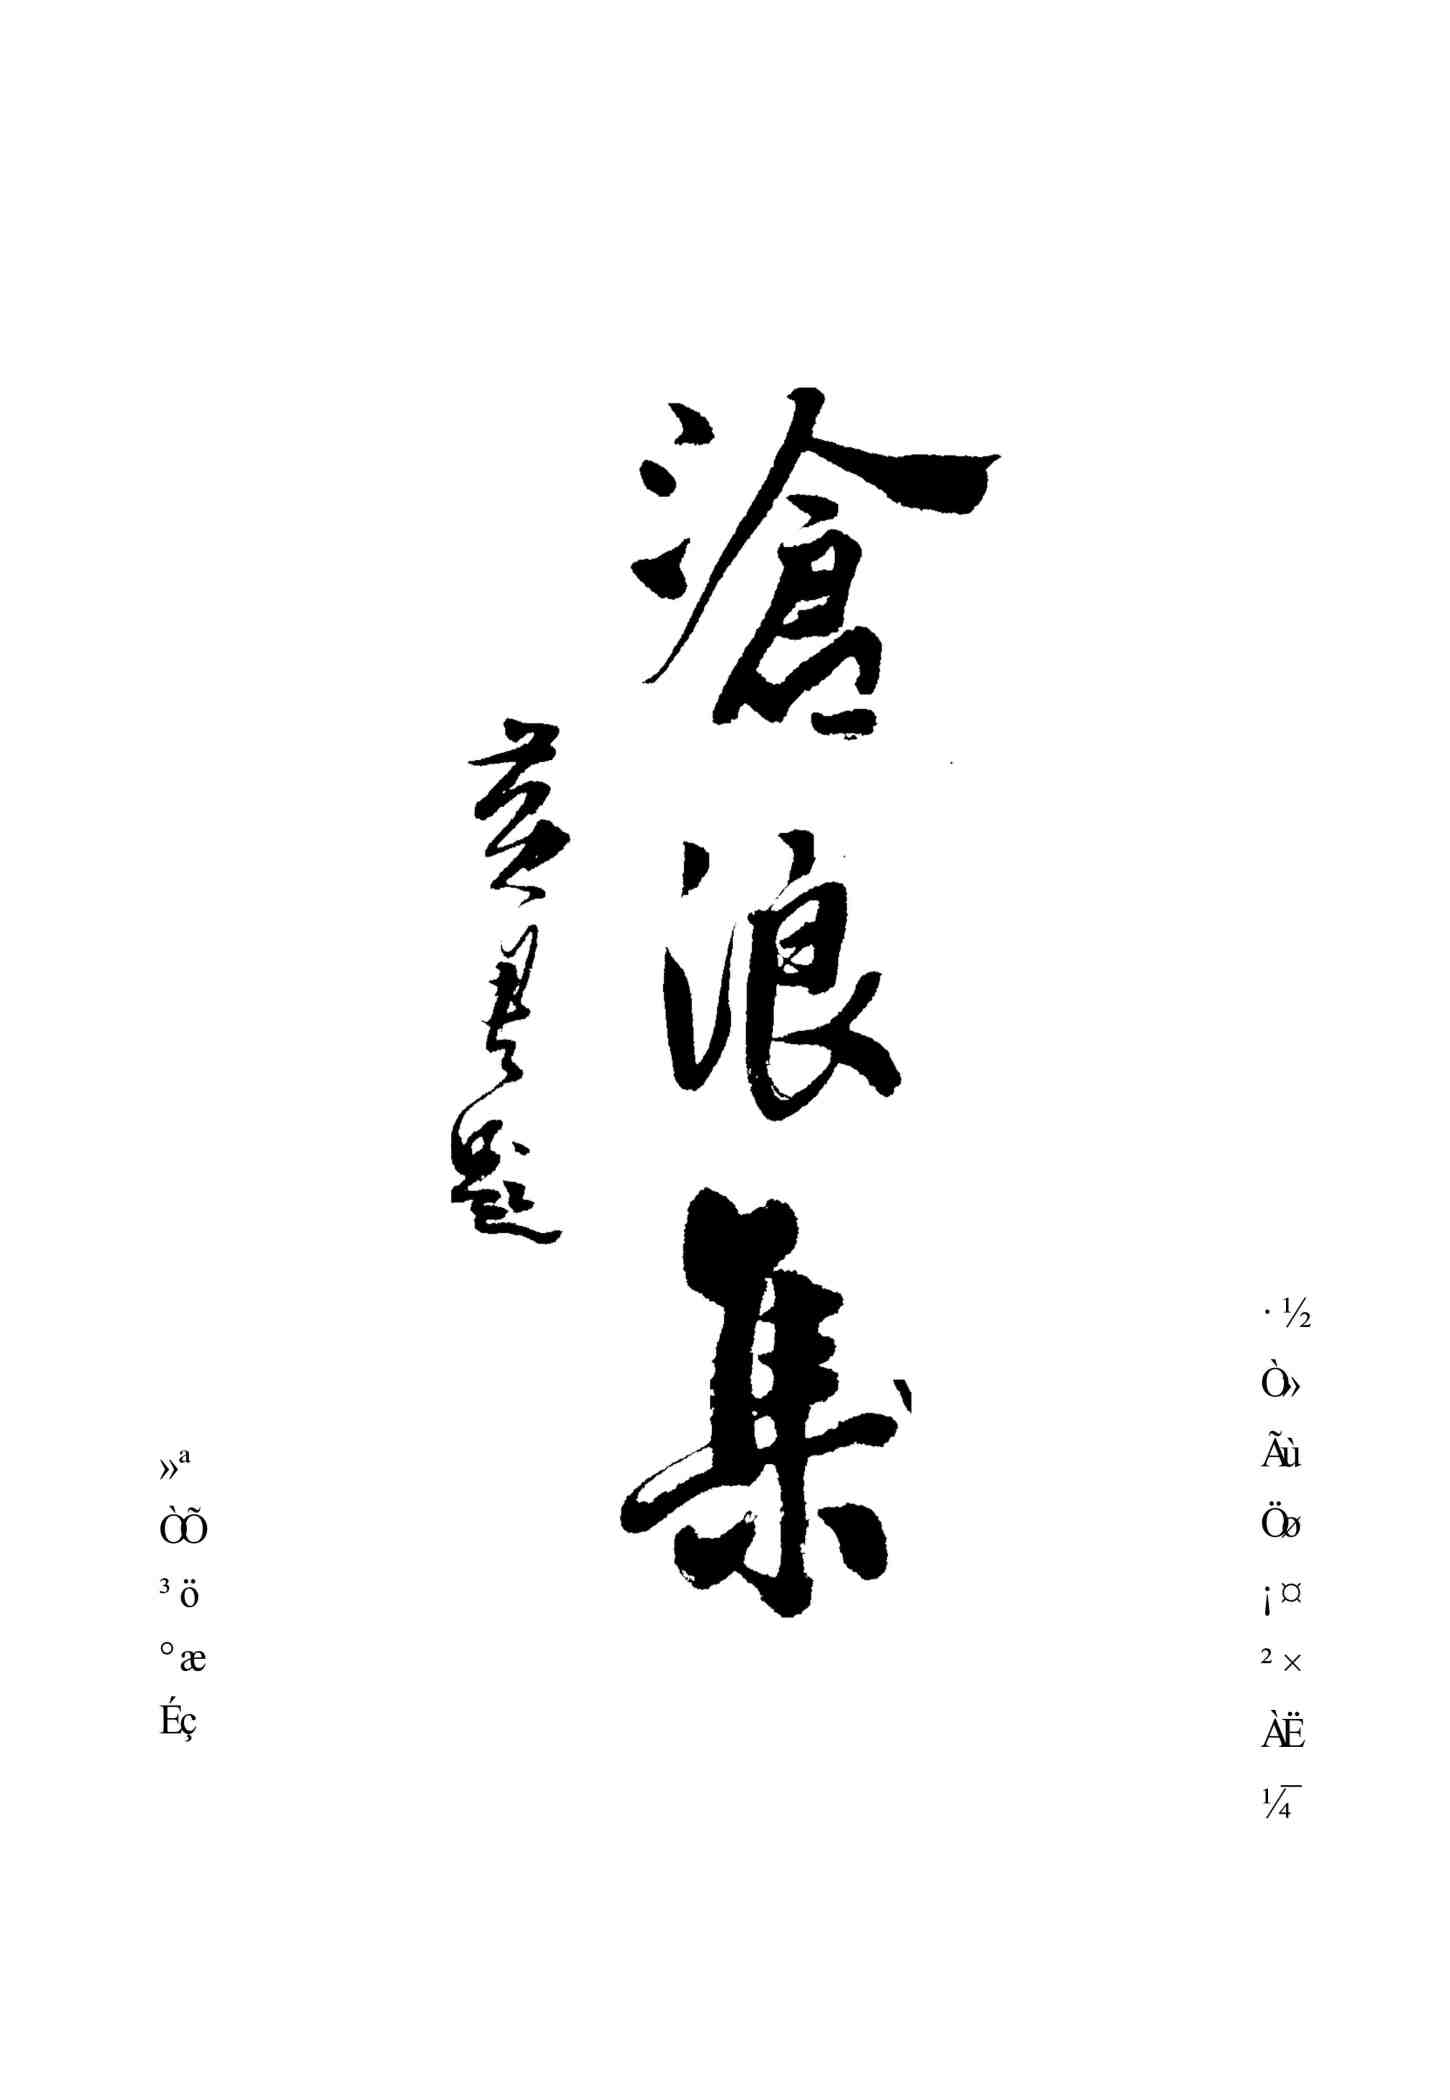 滄浪集
·½
Ò»
Ãù
Öø
¡¤
²×
ÀË
¼¯
»ª
ÒÕ
³ö
°æ
Éç